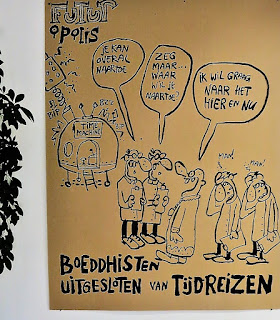 FUTUR
OPOLIS
JE KAN
OVERAL
NAARTOE
ZEG
MAAR...
WAAR
WIL JE
NAARTOE?
IK WIL GRAAG
NAAR HET
HIER EN NU
TIME
MACHINE
BOEDDHISTEN
UITGESLOTEN VAN TIJDREIZEN